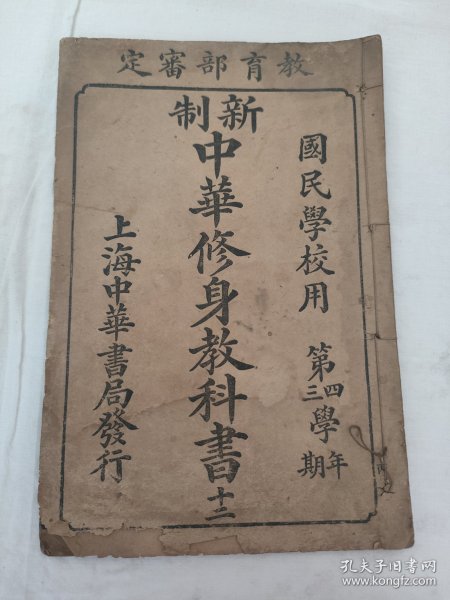 教育部審定
國民學校用 第四三學年期
新制
中華修身教科書 十二
上海中華書局發行
孔夫子旧书网
www.kongfz.com